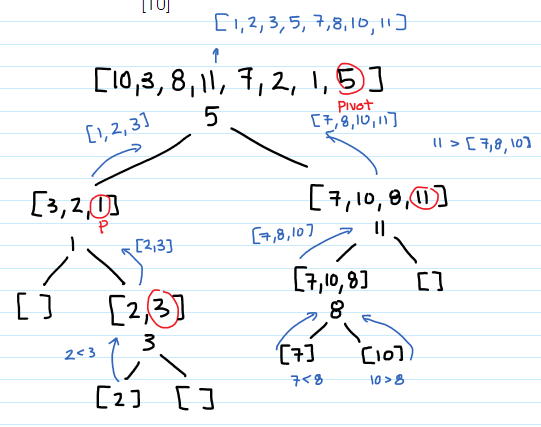 [10]
[1, 2, 3, 5, 7, 8, 10, 11]
[10, 3, 8, 11, 7, 2, 1, 5]
Pivot
5
[1, 2, 3]
[7, 8, 10, 11]
11 > [7, 8, 10]
[3, 2, 1]
P
1
[7, 10, 8, 11]
11
[2, 3]
[7, 8, 10]
[ ]
[2, 3]
3
[7, 10, 8]
8
[ ]
2 < 3
[2]
[ ]
[7]
7 < 8
[10]
10 > 8